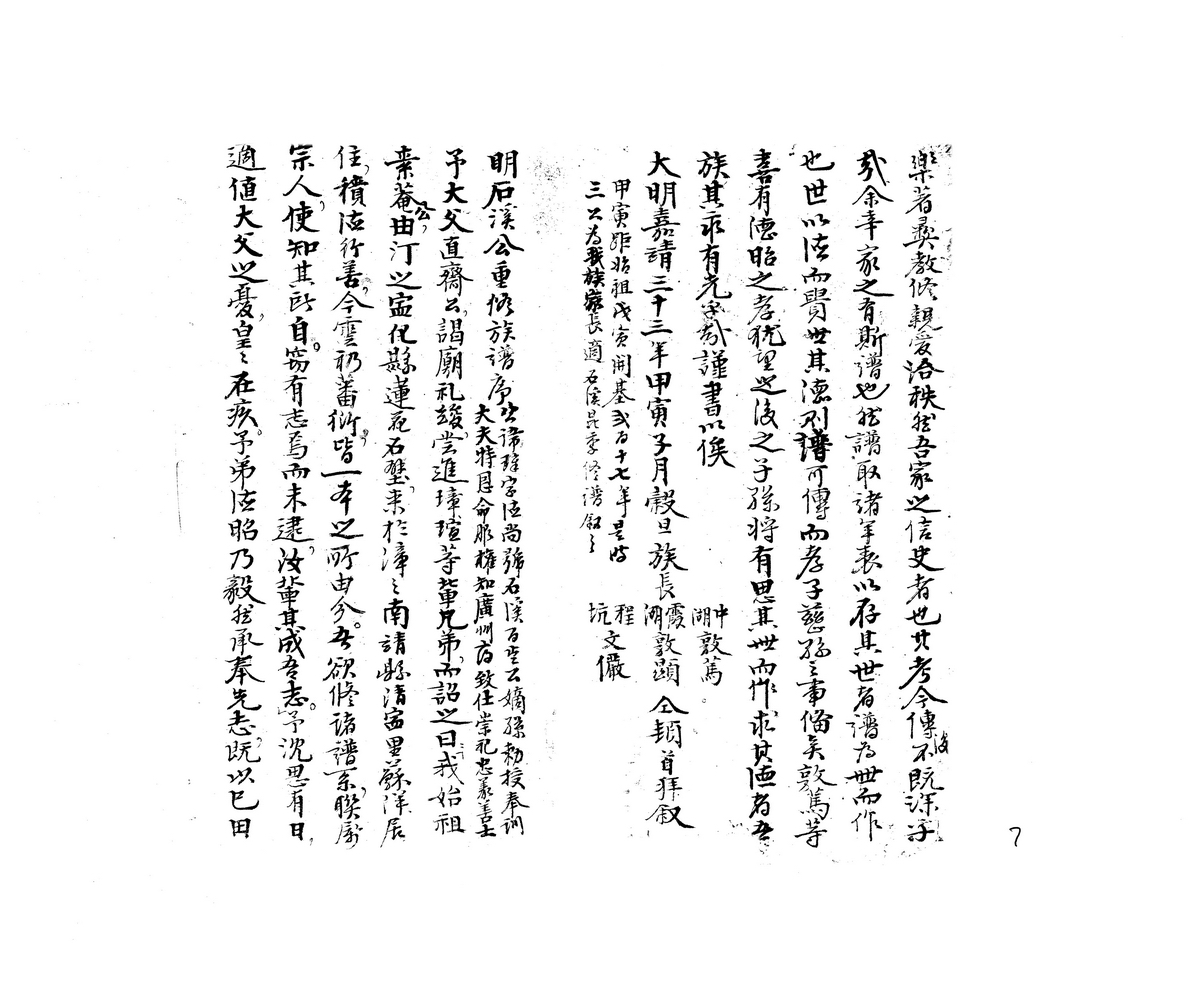 樂著彝教修親愛洽秩然吾家之信史者也其考今傳後不既深乎
哉余幸家之有斯譜也然譜取諸年表以存其世者譜為世而作
也世以德而貴世其德則譜可傳而孝子慈孫之事備矣敦篤等
喜有德昭之孝猶望世後之子孫將有思其世而作求其德者吾
族其永有光乎哉謹書以俟
大明嘉靖三十三年甲寅子月穀旦族長
中湖敦篤
霞湖敦顯
程坑文儼
仝頓首拜叙
甲寅距始祖戊寅開基弍百十七年是時
三公為我族家長適石溪昆季修譜叙之
明石溪公重修族譜序
公諱瑋字德尚號石溪百堂公嫡孫勑授奉訓
大夫特恩命服權知廣州府致仕崇祀忠義善士
予大父直齋公謁廟礼竣嘗進璋瑄等輩兄弟而詔之曰我始祖
棄菴公由汀之寍化縣蓮花石壁来於漳之南請縣清寍里蘇洋辰
住積德行善今雲礽蕃衍皆一本之所由分吾欲修諸譜系聯厥
宗人使知其所自竊有志焉而未逮汝輩其成吾志予沈思有日
適值大父之憂皇之在疚予弟德昭乃毅然承奉先志既以已田
7